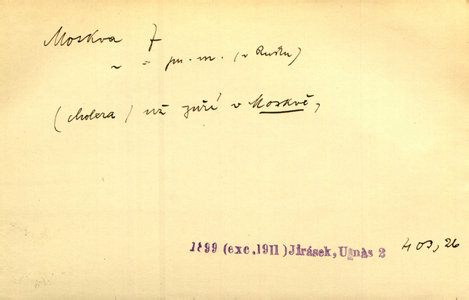 Moskva f
~ = jm. m. (v Rusku)
(cholera) už zuří v Moskvě,
1899 (exc.1911) Jirásek, U nás 2 403, 26